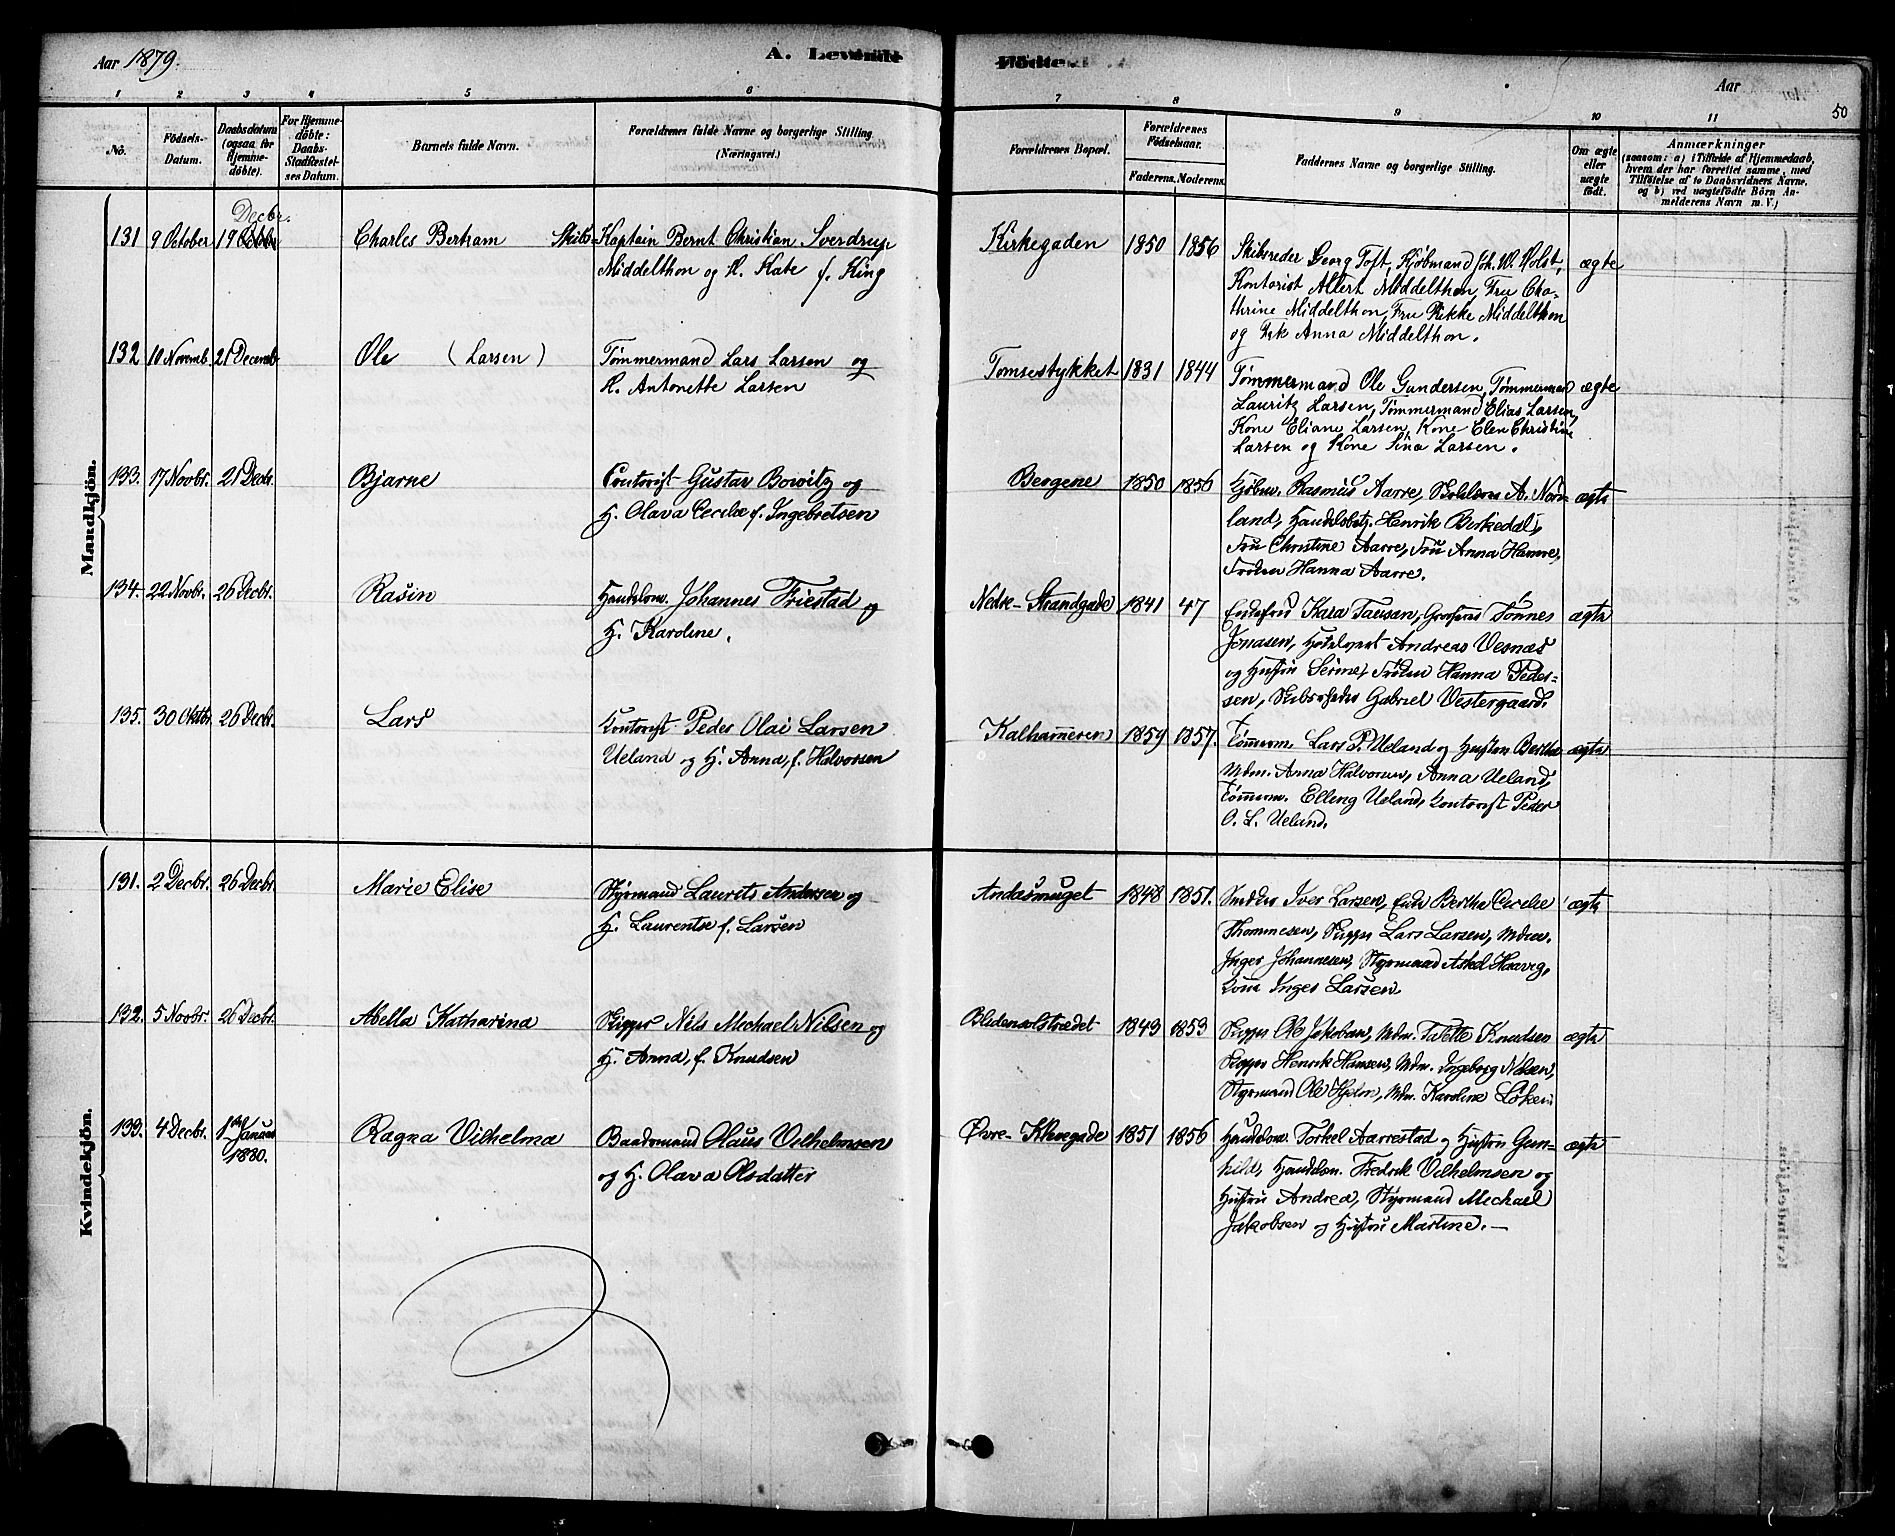 Aar 1879.
A. Levende
Fødte.
Aar
50
1 2 3 4 5 6 7 8 9 10 11
No.
Födsels-
Datum.
Daabsdatum
(ogsaa for
Hjemme-
döbte).
For Hjemme-
döbte:
Daabs-
Stadfæstel-
ses Datum.
Barnets fulde Navn.
Forældrenes fulde Navne og borgerlige Stilling
(Næringsvei.)
Forældrenes Bopæl.
Forældrenes
Födselsaar.
Faderens. Moderens.
Faddernes Navne og borgerlige Stilling.
Om ægte
eller
uægte
födt.
Anmærkninger
(saasom: a) i Tilfælde af Hjemmedaab,
hvem der har forrettet samme, med
Tilföielse af to Daabsvidners Navne,
og b) ved uægtefödte Börn An-
melderens Navn m. V.)
Mandkjön.
Decbr.
131 9 October 19 October Charles Bertram Skibs-Kaptain Bernt Christian Sverdrup
Middelthon og H. Kate f. King
Kirkegaden 1850 1856 Skibsreder Georg Toft, Kjøbmand Joh. W. Holst, ægte
Kontorist Allert Middelthon, Fru Cha-
thrine Middelthon, Fru Rikke Middelthon
og Frk Anna Middelthon.
132 10 Novemb. 21 Decemb Ole (Larsen) Tømmermand Lars Larsen og
H. Antonette Larsen
Tomsestykket 1831 1844 Tømmermand Ole Gundersen, Tømmermand ægte
Lauritz Larsen, Tømmermand Elias Larsen,
Kone Eliane Larsen, Kone Elen Christine
Larsen og Kone Sina Larsen.
133. 17 Novbr. 21 Decbr. Bjarne Contorist Gustav Bowitz og
H. Olava Cecilie f. Ingebretsen
Bergene 1850 1856 Kjøbm. Rasmus Aarre, A. Nord- ægte
land, Handelsbetj. Henrik Birkedal,
Fru Christine Aarre, Fru Anna Hamre,
Frøken Hanna Aarre.
134. 22 Novbr. 26 Decbr. Rasin Handelsm. Johannes Friestad og
H. Karoline.
Nedre-Strandgade 1841 47 Kara Tausan, Tønnes ægte
Jonasen, Andreas Vesnæs
og Hustru Serine, Frøken Hanna Peder-
sen, Gabriel Vestergaard.
135. 30 Oktbr. 26 Decbr. Lars Kontorist Peder Olai Larsen
Ueland og H. Anna, f. Halvorsen
Kalhammeren 1859 1857. Tømmerm. Lars P. Ueland og Hustru Bertha ægte
Mdm. Anna Halvorsen, Anna Ueland,
Tømmerm. Elling Ueland, Kontorist Peder
O. L. Ueland.
Kvindekjön.
131. 2 Decbr. 26 Decbr. Marie Elise Styrmand Laurits Andersen og
H. Laurentse f. Larsen
Andasmuget 1848 1851. Iver Larsen, Bertha Cecilie ægte
Thommesen, Skipper Lars Larsen, Mdm.
Inger Johannesen, Styrmand Askel Haavig,
Kone Inger Larsen
132. 5 Novbr. 26 Decbr. Abella Katharina Skipper Nils Michael Nilsen og
H. Anna, f. Knudsen
Blidensolstrædet 1849 1853 Skipper Ole Jakobsen, Mdm. Tolette Knudsen ægte
Skipper Henrik Hansen, Mdm. Ingeborg Nilsen,
Styrmand Ole Hjelm, Mdm. Karoline Løken
133. 4 Decbr. 1ste Januar
1880. Ragna Vilhelma Baadsmand Olaus Vilhelmsen
og H. Olava Olsdatter
Øvre-Klevegade 1851 1856 Handelsm. Torkel Aarrestad og Hustru Gun- ægte
hild, Handelsm. Fredrik Vilhelmsen og
Hustru Andrea, Styrmand Michael
Jakobsen og Hustru Martine. —